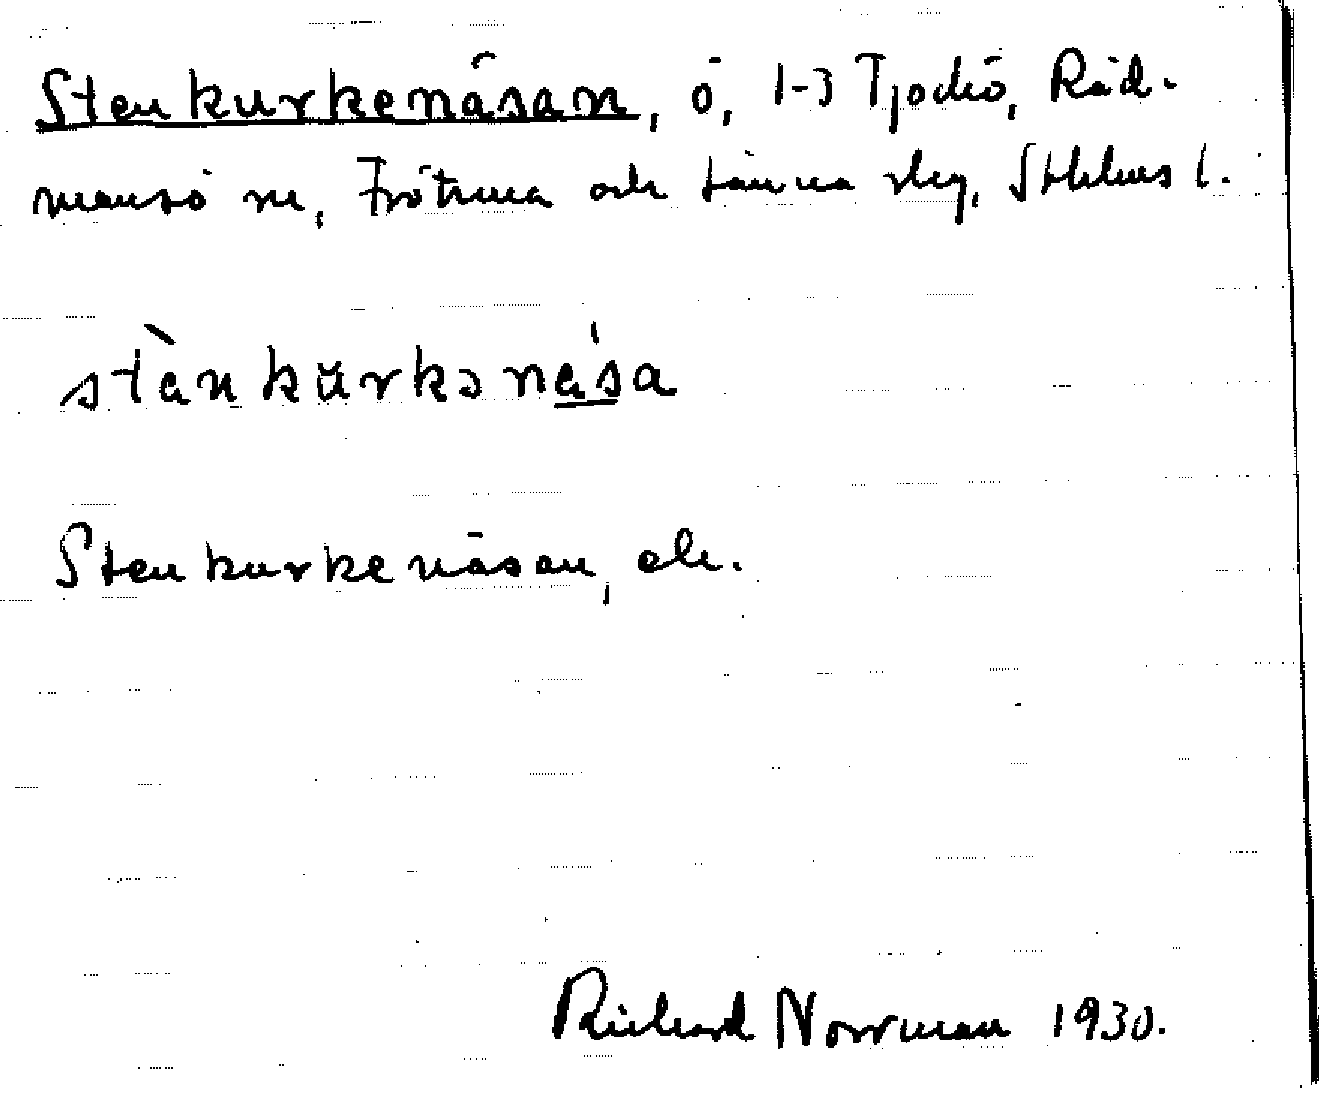 Stenkurkenäsan, ö, 1-3 Tjockö, Råd-
mansö sn, Frötuna och Länna slg, Sthlms l.
stὲnkūrkənɑ́sa
Stenkurkenäsan, ek.
Richard Norrman 1930.